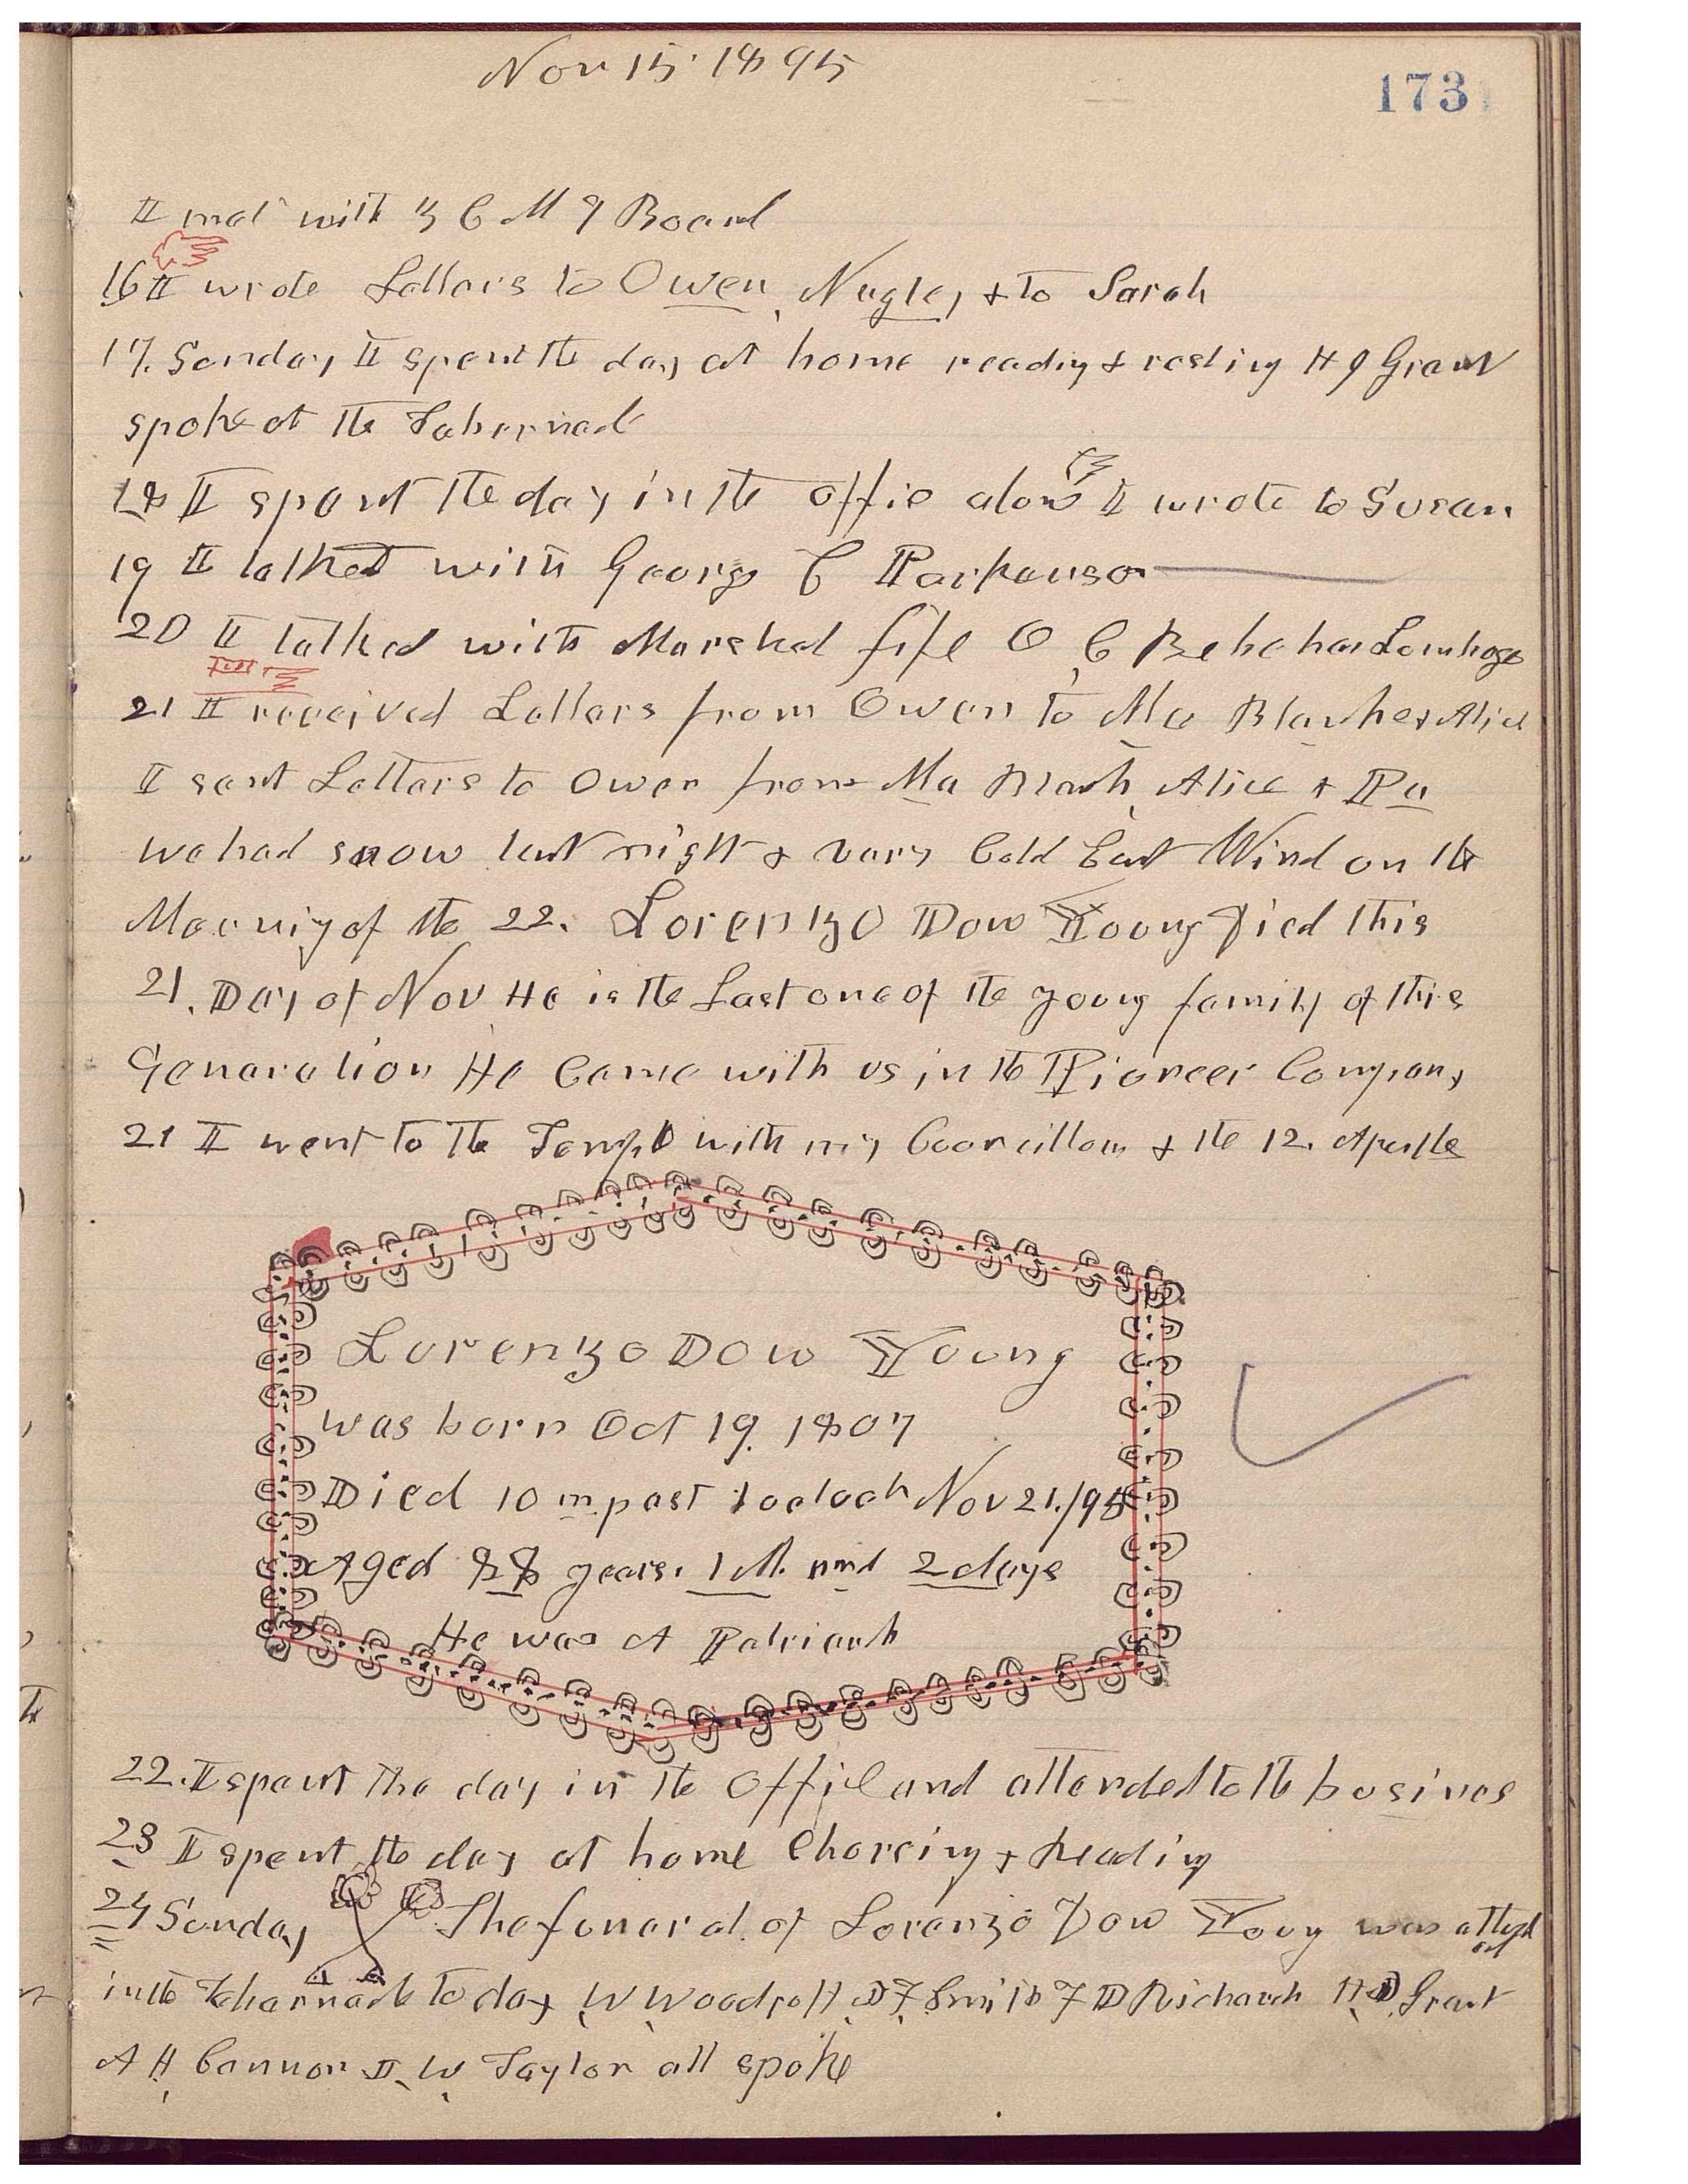 Nov 15 1895
173
I met with Z C M I Board
16 I wrote Letters to Owen, Nugle, & to Sarah
17. Sunday I spent the day at home reading & resting H J Grant
spoke at the Tabernacle
18 I spent the day in the office alone I wrote to Susan
19 I talked with George C Parkenson
20 I talked with Marshal fife O C
21 I received Letters from Owen to Ma Blanche & Alice
I sent Letters to Owen from Ma Blanch, Alice & Pa
we had snow last night & vary Cold East Wind on the
Morning of the 22. Lorenzo Dow Young Died this
21. Day of Nov He is the Last one of the young family of this
Generation He Came with us in the Pioneer Company
21 I went to the Temple with my Councillors & the 12. Apostle
Lorenzo Dow Young
was born Oct 19. 1807
Died 10 m past 1 oclock Nov 21./95
Aged 88 years. 1 M. and 2 days
He was A Patriarch
22. I spent the day in the Office and attended to the business
23 I spent the day at home Choreing & Reading
24 Sunday The funeral of Lorenzo Dow Young was attend
ed
in the Tabernacle to day W Woodruff J F Smith F D Richards H J Grant
A H Cannon J W Taylor all spoke